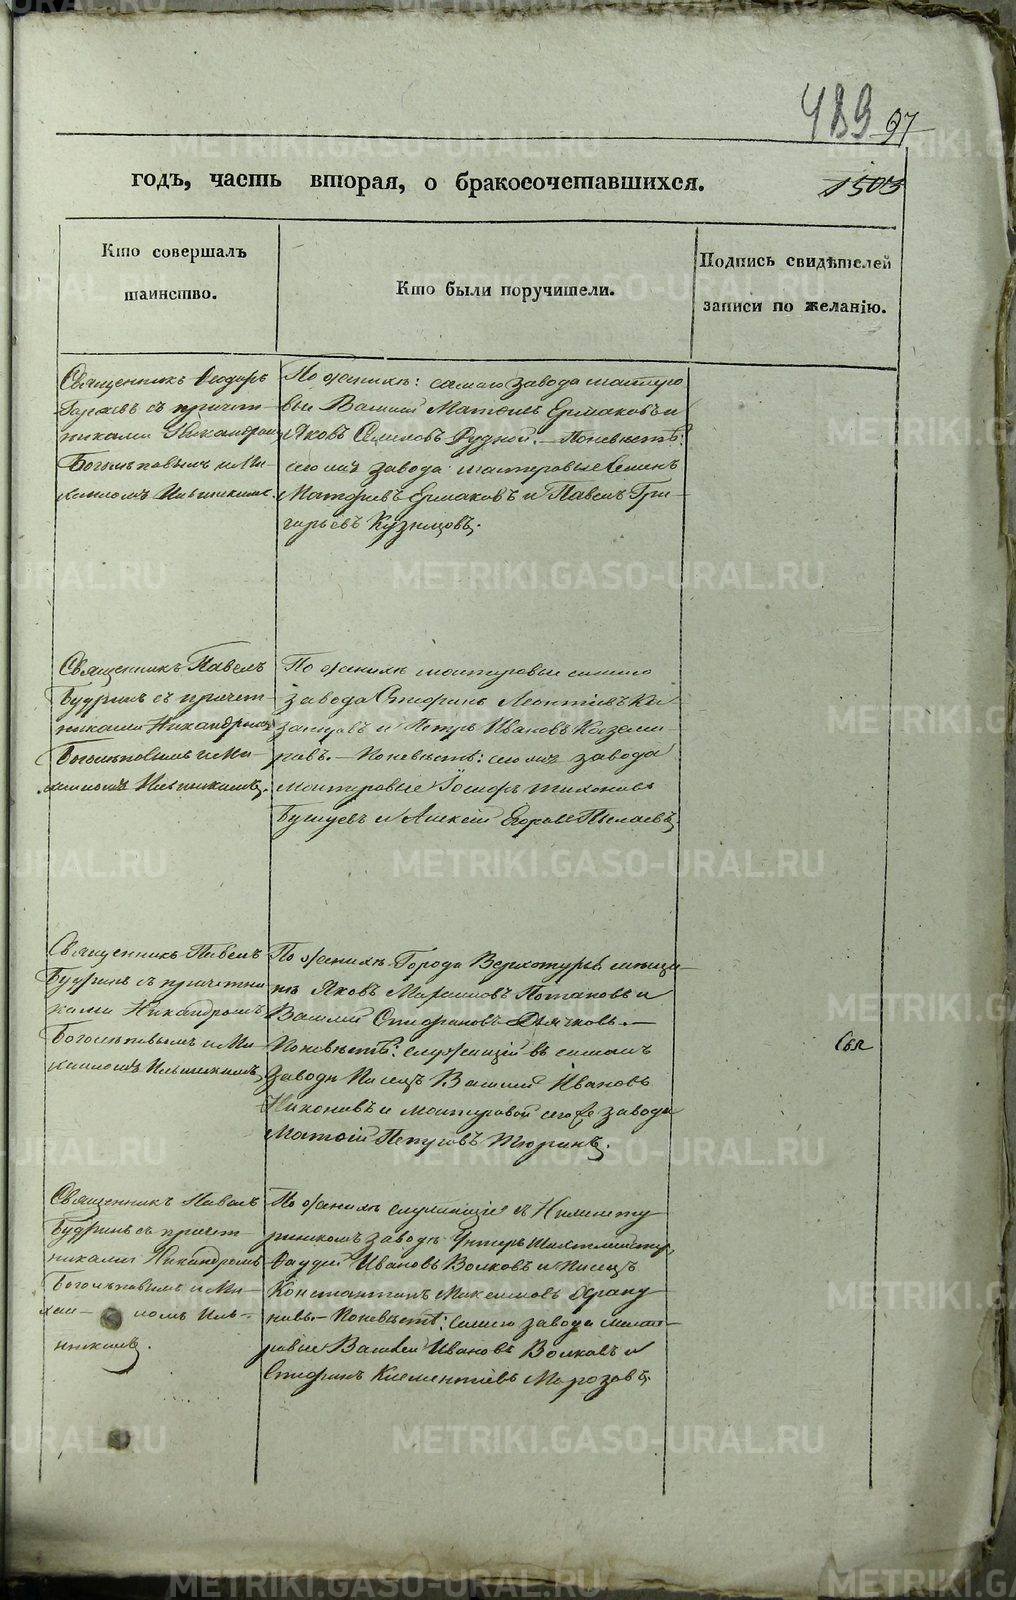 489
97
годъ, часть вторая, о бракосочетавшихся.
1503
Кто совершалъ
таинство.
Кто были поручители.
Подпись свидѣтелей
записи по желанію.
Священникъ Ѳеодоръ
съ причет-
никами Никандромъ
Боголѣповымъ и Ми-
хаиломъ Ильинскимъ.
По женихѣ: самаго завода мастеро
вые Василій Матвѣевъ Ермаковъ и
Яковъ Семеновъ Рудной. — По невѣстѣ:
сего же завода мастеровые Семенъ
Матвѣевъ Ермаковъ и Павелъ Гри-
горьевъ Кузнецовъ.
Священникъ Павелъ
Будринъ съ причет-
никами Никандромъ
Боголѣповымъ и Ми-
хаиломъ Ильинскимъ.
По женихѣ мастеровые
завода Стефанъ Леонтіевъ Ка-
и Петръ Ивановъ Казами-
ровъ. — По невѣстѣ: сего же завода
мастеровые Іосифъ Тихоновъ
Бушуевъ и Алексѣй Егоровъ
Священникъ Павелъ
Будринъ съ причетни
ками Никандромъ
Боголѣповымъ и Ми-
хаиломъ Ильинскимъ,
По женихѣ Города Верхотурья мѣща-
не Яковъ Потаповъ и
Василій Стефановъ Дьячковъ. —
По невѣстѣ: служащій въ
заводѣ Писецъ Василій Ивановъ
Никоновъ и мастеровой сего же завода
Тюринъ.
Священникъ Павелъ
Будринъ съ причет-
никами Никандромъ
Боголѣповымъ и Ми-
хаи- ломъ Иль-
инскимъ.
По женихѣ служащіе въ
заводѣ
Ивановъ Волковъ и Писецъ
Константинъ Максимовъ
По невѣстѣ: завода масте-
ровые Василій Ивановъ Волковъ и
Стефанъ Клементіевъ Морозовъ.
METRIKI.GASO-URAL.RU